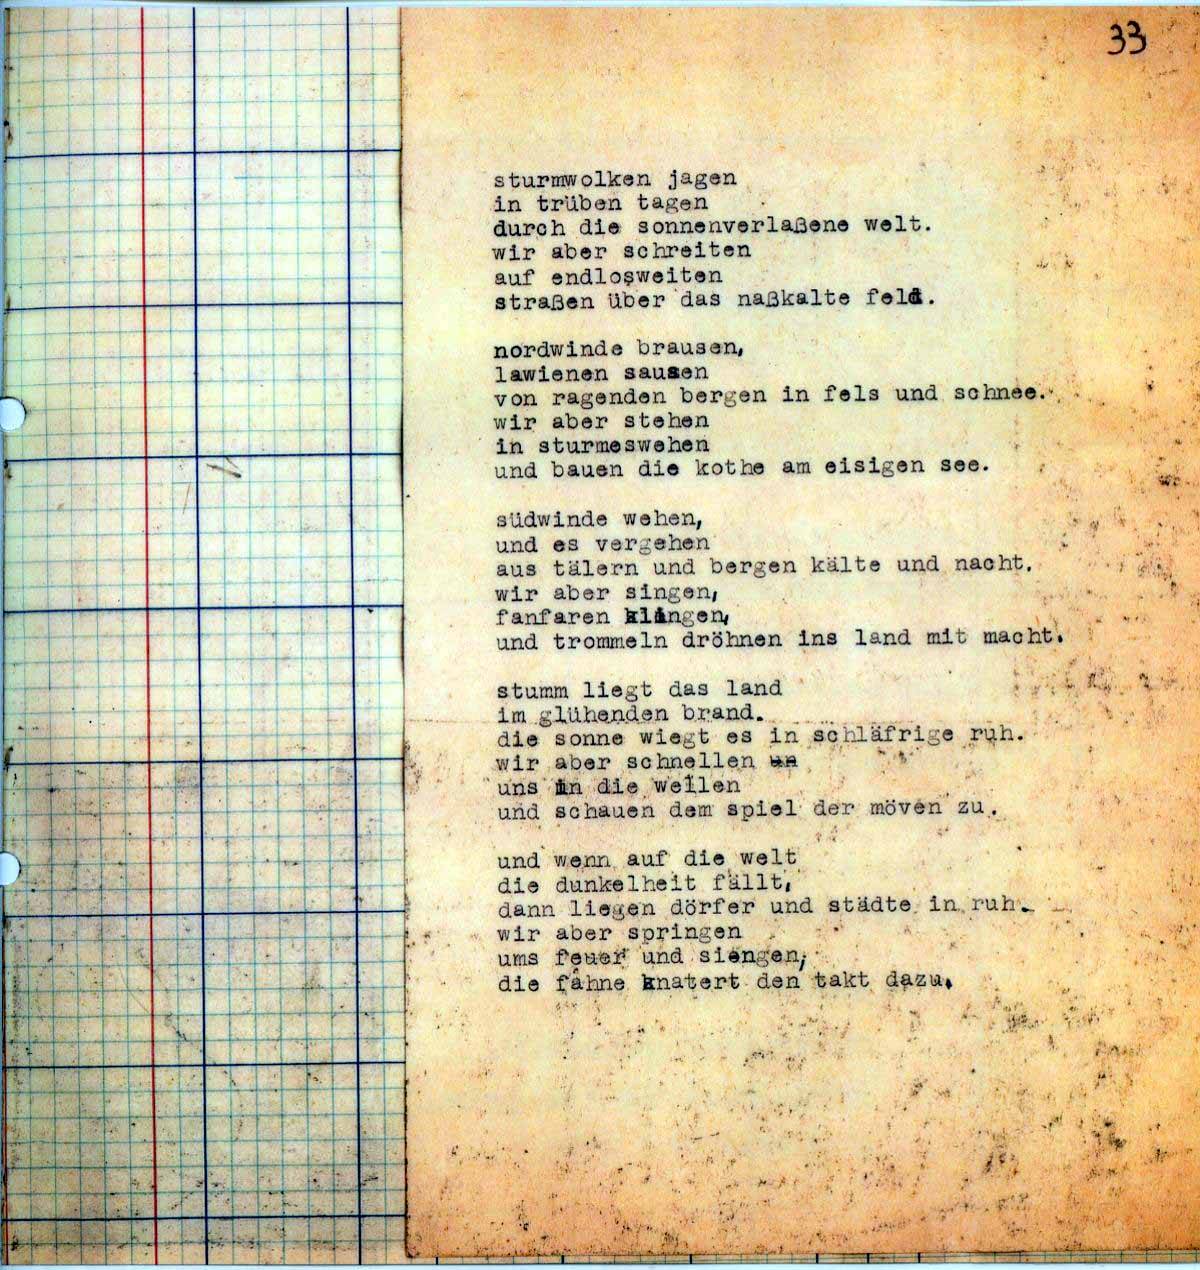 33
sturmwolken jagen
in trüben tagen
durch die sonnenverlaßene welt.
wir aber schreiten
auf endlosweiten
straßen über das naßkalte feld.
nordwinde brausen,
lawienen sausen
von ragenden bergen in fels und schnee.
wir aber stehen
in sturmeswehen
und bauen die kothe am eisigen see.
südwinde wehen,
und es vergehen
aus tälern und bergen kälte und nacht.
wir aber singen,
fanfaren klingen,
und trommeln dröhnen ins land mit macht.
stumm liegt das land
im glühenden brand.
die sonne wiegt es in schläfrige ruh.
wir aber schnellen un
uns in die wellen
und schauen dem spiel der möven zu.
und wenn auf die welt
die dunkelheit fällt,
dann liegen dörfer und städte in ruh.
wir aber springen
ums feuer und siengen,
die fahne knatert den takt dazu.